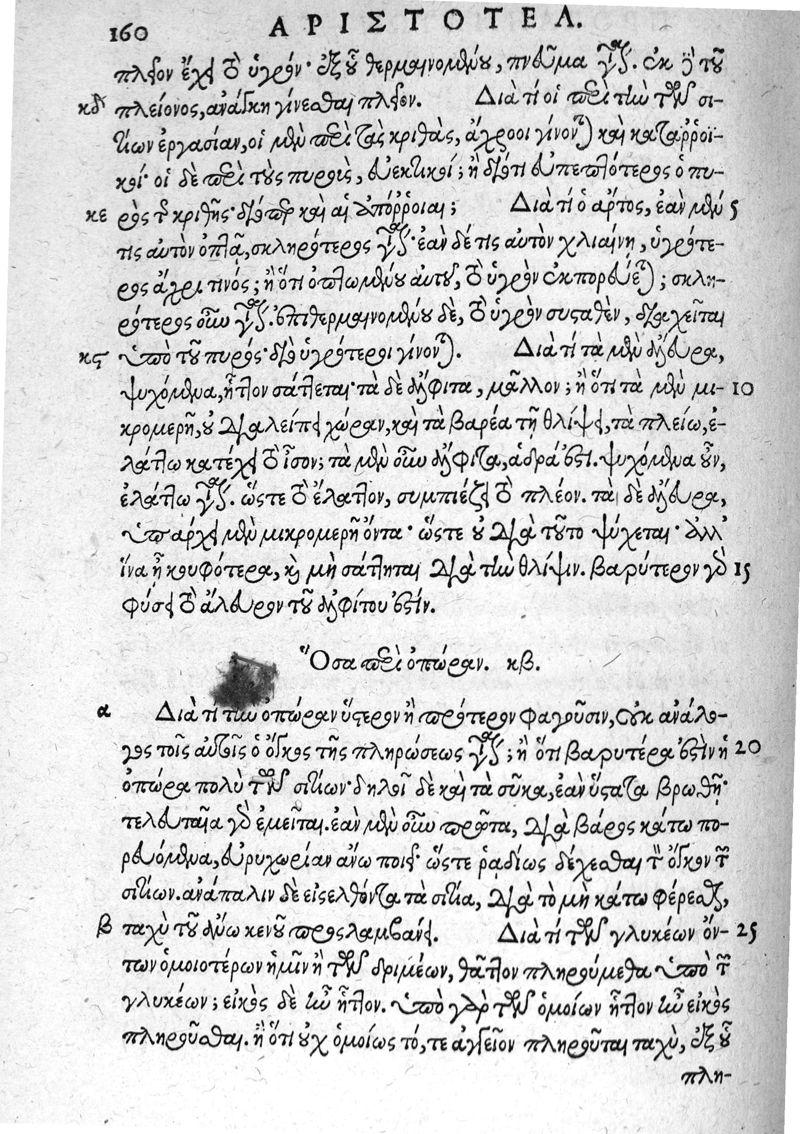 160 ΑΡΙΣΤΟΤΕΛ.
πλεῖον ἔχει τὸ ὑγρόν· ἐξ οὗ θερμαινομένου, πνεῦμα γίνεται. ἐκ γὰρ τοῦ
κδ πλείονος, ἀνάγκη γίνεσθαι πλεῖον. Διὰ τί οἱ περὶ τὴν τῶν σι-
τίων ἐργασίαν, οἱ μὲν περὶ τὰς κριθὰς, ἄχροοι γίνονται καὶ καταῤῥοϊ-
κοί· οἱ δὲ περὶ τοὺς πυροὺς, εὐεκτικοί; ἢ διότι εὐπεπτότερος ὁ πυ-
κε ρὸς τῆς κριθῆς· διόπερ καὶ αἱ ἀπόῤῥοιαι; Διὰ τί ὁ ἄρτος, ἐὰν μέν 5
τις αὐτὸν ὀπτᾷ, σκληρότερος γίνεται· ἐὰν δέ τις αὐτὸν χλιαίνῃ, ὑγρότε-
ρος ἄχρι τινός; ἢ ὅτι ὀπτωμένου αὐτοῦ, τὸ ὑγρὸν ἐκπορεύεται; σκλη-
ρότερος οὖν γίνεται. ἐπιθερμαινομένου δὲ, τὸ ὑγρὸν συσταθὲν, διαχεῖται
κς ὑπὸ τοῦ πυρός· διὸ ὑγρότεροι γίνονται. Διὰ τί τὰ μὲν ἄλευρα,
ψυχόμενα, ἧττον σάττεται· τὰ δὲ ἄλφιτα, μᾶλλον; ἢ ὅτι τὰ μὲν μι- 10
κρομερῆ, οὐ διαλείπει χώραν, καὶ τὰ βαρέα τῇ θλίψει, τὰ πλείω, ἐ-
λάττω κατέχει τὸ ἶσον; τὰ μὲν οὖν ἄλφιτα, ἁδρά ἐστι. ψυχόμενα οὖν,
ἐλάττω γίνεται. ὥστε τὸ ἔλαττον, συμπιέζει τὸ πλέον. τὰ δὲ ἄλευρα,
ὑπάρχει μὲν μικρομερῆ ὄντα· ὥστε οὐ διὰ τοῦτο ψύχεται· ἀλλ'
ἵνα ᾖ κουφότερα, καὶ μὴ σάττηται διὰ τὴν θλίψιν. βαρύτερον γὰρ 15
φύσει τὸ ἄλευρον τοῦ ἀλφίτου ἐστίν.
Ὅσα περὶ ὀπώραν. κβ.
α Διὰ τί τὴν ὀπώραν ὕστερον ἢ πρότερον φαγοῦσιν, οὐκ ἀνάλο-
γος τοῖς αὐτοῖς ὁ ὄγκος τῆς πληρώσεως γίνεται; ἢ ὅτι βαρυτέρα ἐστὶν ἡ 20
ὀπώρα πολὺ τῶν σιτίων· δηλοῖ δὲ καὶ τὰ σῦκα, ἐὰν ὕστατα βρωθῇ·
τελευταῖα γὰρ ἐμεῖται. ἐὰν μὲν οὖν πρῶτα, διὰ βάρος κάτω πο-
ρευόμενα, εὐρυχωρίαν ἄνω ποιεῖ· ὥστε ῥᾳδίως δέχεσθαι τὸν ὄγκον τῶν
σιτίων. ἀνάπαλιν δὲ εἰσελθόντα τὰ σιτία, διὰ τὸ μὴ κάτω φέρεσθαι,
β ταχὺ τοῦ ἄνω κενοῦ προςλαμβάνει. Διὰ τί τῶν γλυκέων ὄν- 25
των ὁμοιοτέρων ἡμῖν ἢ τῶν δριμέων, θᾶττον πληρούμεθα ὑπὸ τῶν
γλυκέων; εἰκὸς δὲ ἦν ἧττον. ὑπὸ γὰρ τῶν ὁμοίων ἧττον ἦν εἰκὸς
πληροῦσθαι. ἢ ὅτι οὐχ ὁμοίως τό, τε ἀγγεῖον πληροῦται ταχὺ, ἐξ οὗ
πλη-